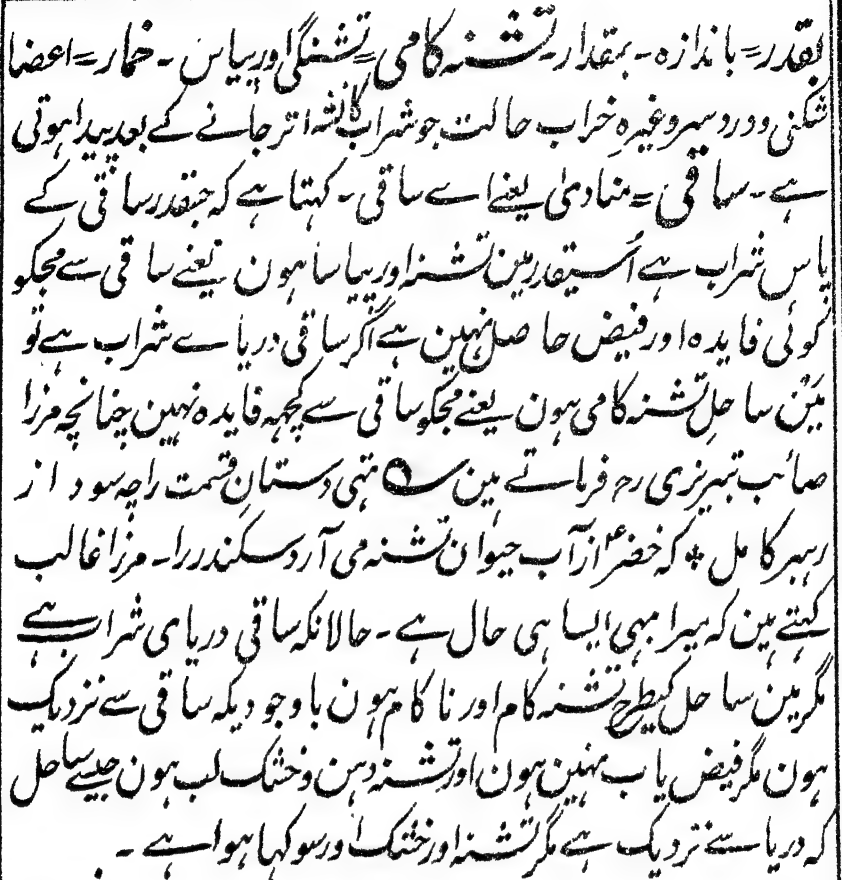 بقدر = باندازہ ۔ بمقدار ۔ تشنہ کامی = تشنگی اور پیاس ۔ خمار = اعضا
شکنی و درد سر وغیرہ خراب حالت جو شراب کا نشہ اتر جانے کے بعد پیدا ہوتی
ہے ۔ ساقی = منادیٰ یعنے اے ساقی ۔ کہتا ہے کہ جسقدر ساقی کے
پاس شراب ہے اُسیقدر مین تشنہ اور پیاسا ہون یعنے ساقی سے مجکو
کوئی فایدہ اور فیض حاصل نہین ہے اگر ساقی دریاے شراب ہے تو
مَیْن ساحلِ تشنہ کامی ہون یعنے مجکو ساقی سے کچہہ فایدہ نہین چنانچہ مرزا
صائب تبریزی رح فرماتے ہین ؎ تہی دستانِ قسمت را چہ سود از
رہبر کامل * کہ خضرؑ از آب حیوان تشنہ می آرد سکندر را ۔ مرزا غالب
کہتے ہین کہ میرا بہی ایسا ہی حال ہے ۔ حالانکہ ساقی دریای شراب ہے
مگر مین ساحل کیطرح تشنہ کام اور ناکام ہون باوجودیکہ ساقی سے نزدیک
ہون مگر فیض یاب نہین ہون اور تشنہ دہن و خشک لب ہون جیسے ساحل
کہ دریا سے نزدیک ہے مگر تشنہ اور خشک اور سوکہا ہوا ہے ۔